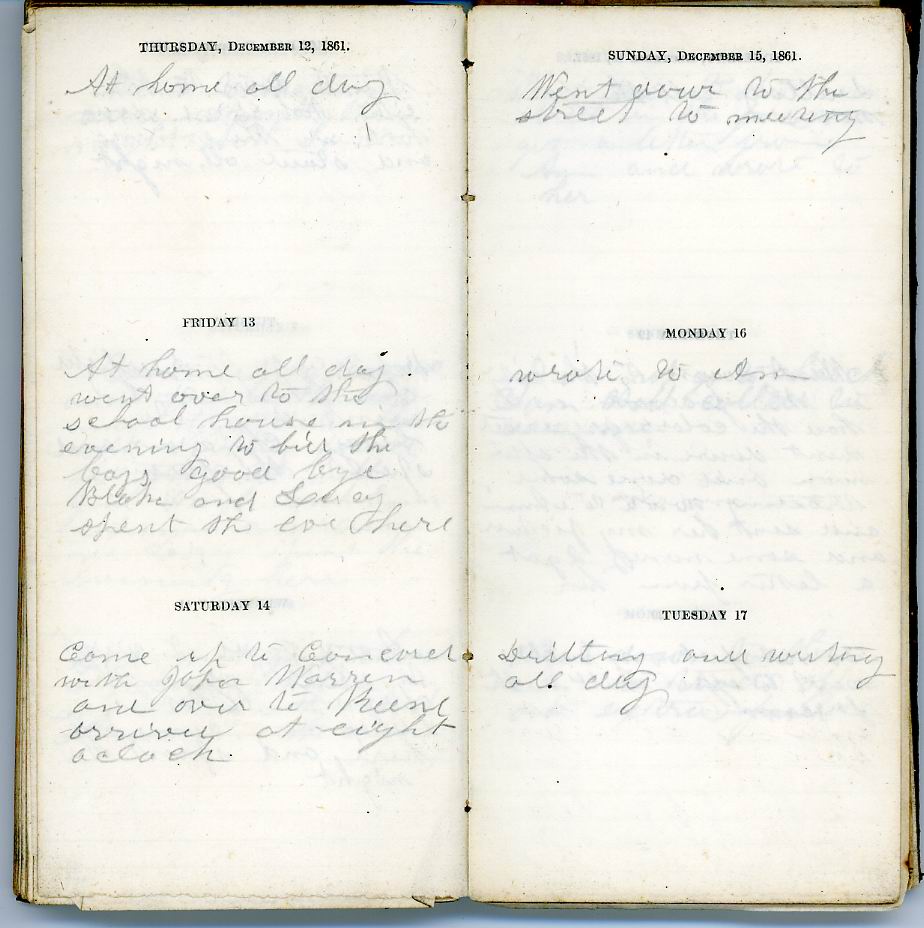 THURSDAY, DECEMBER 12, 1861.
At home all day
FRIDAY 13
At home all day
went over to the
school house in the
evening to bid the
boys good bye
Blake and
spent the eve there
SATURDAY 14
Come up to Concord
with John Warren
and over to Keene
arrived at eight
oclock
SUNDAY, DECEMBER 15, 1861.
Went down to the
street to meeting
MONDAY 16
wrote to Am
TUESDAY 17
Drilling and writing
all day